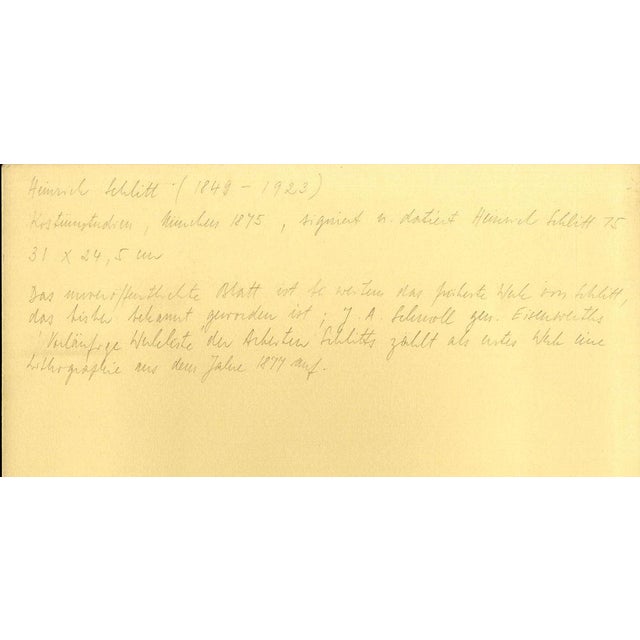 Heinrich Schlitt (1849 – 1923)
Kostümstudien, München 1875, signiert u. datiert Heinrich Schlitt 75
31 x 24,5 cm
Das unveröffentlichte Blatt ist bei weitem das früheste Werk von Schlitt,
das bisher bekannt geworden ist; J. A. Schmoll gen. Eisenwerths
"Vorläufige Werkliste der Arbeiten Schlitts zählt als erstes Werk eine
Lithographie aus dem Jahre 1877 auf.